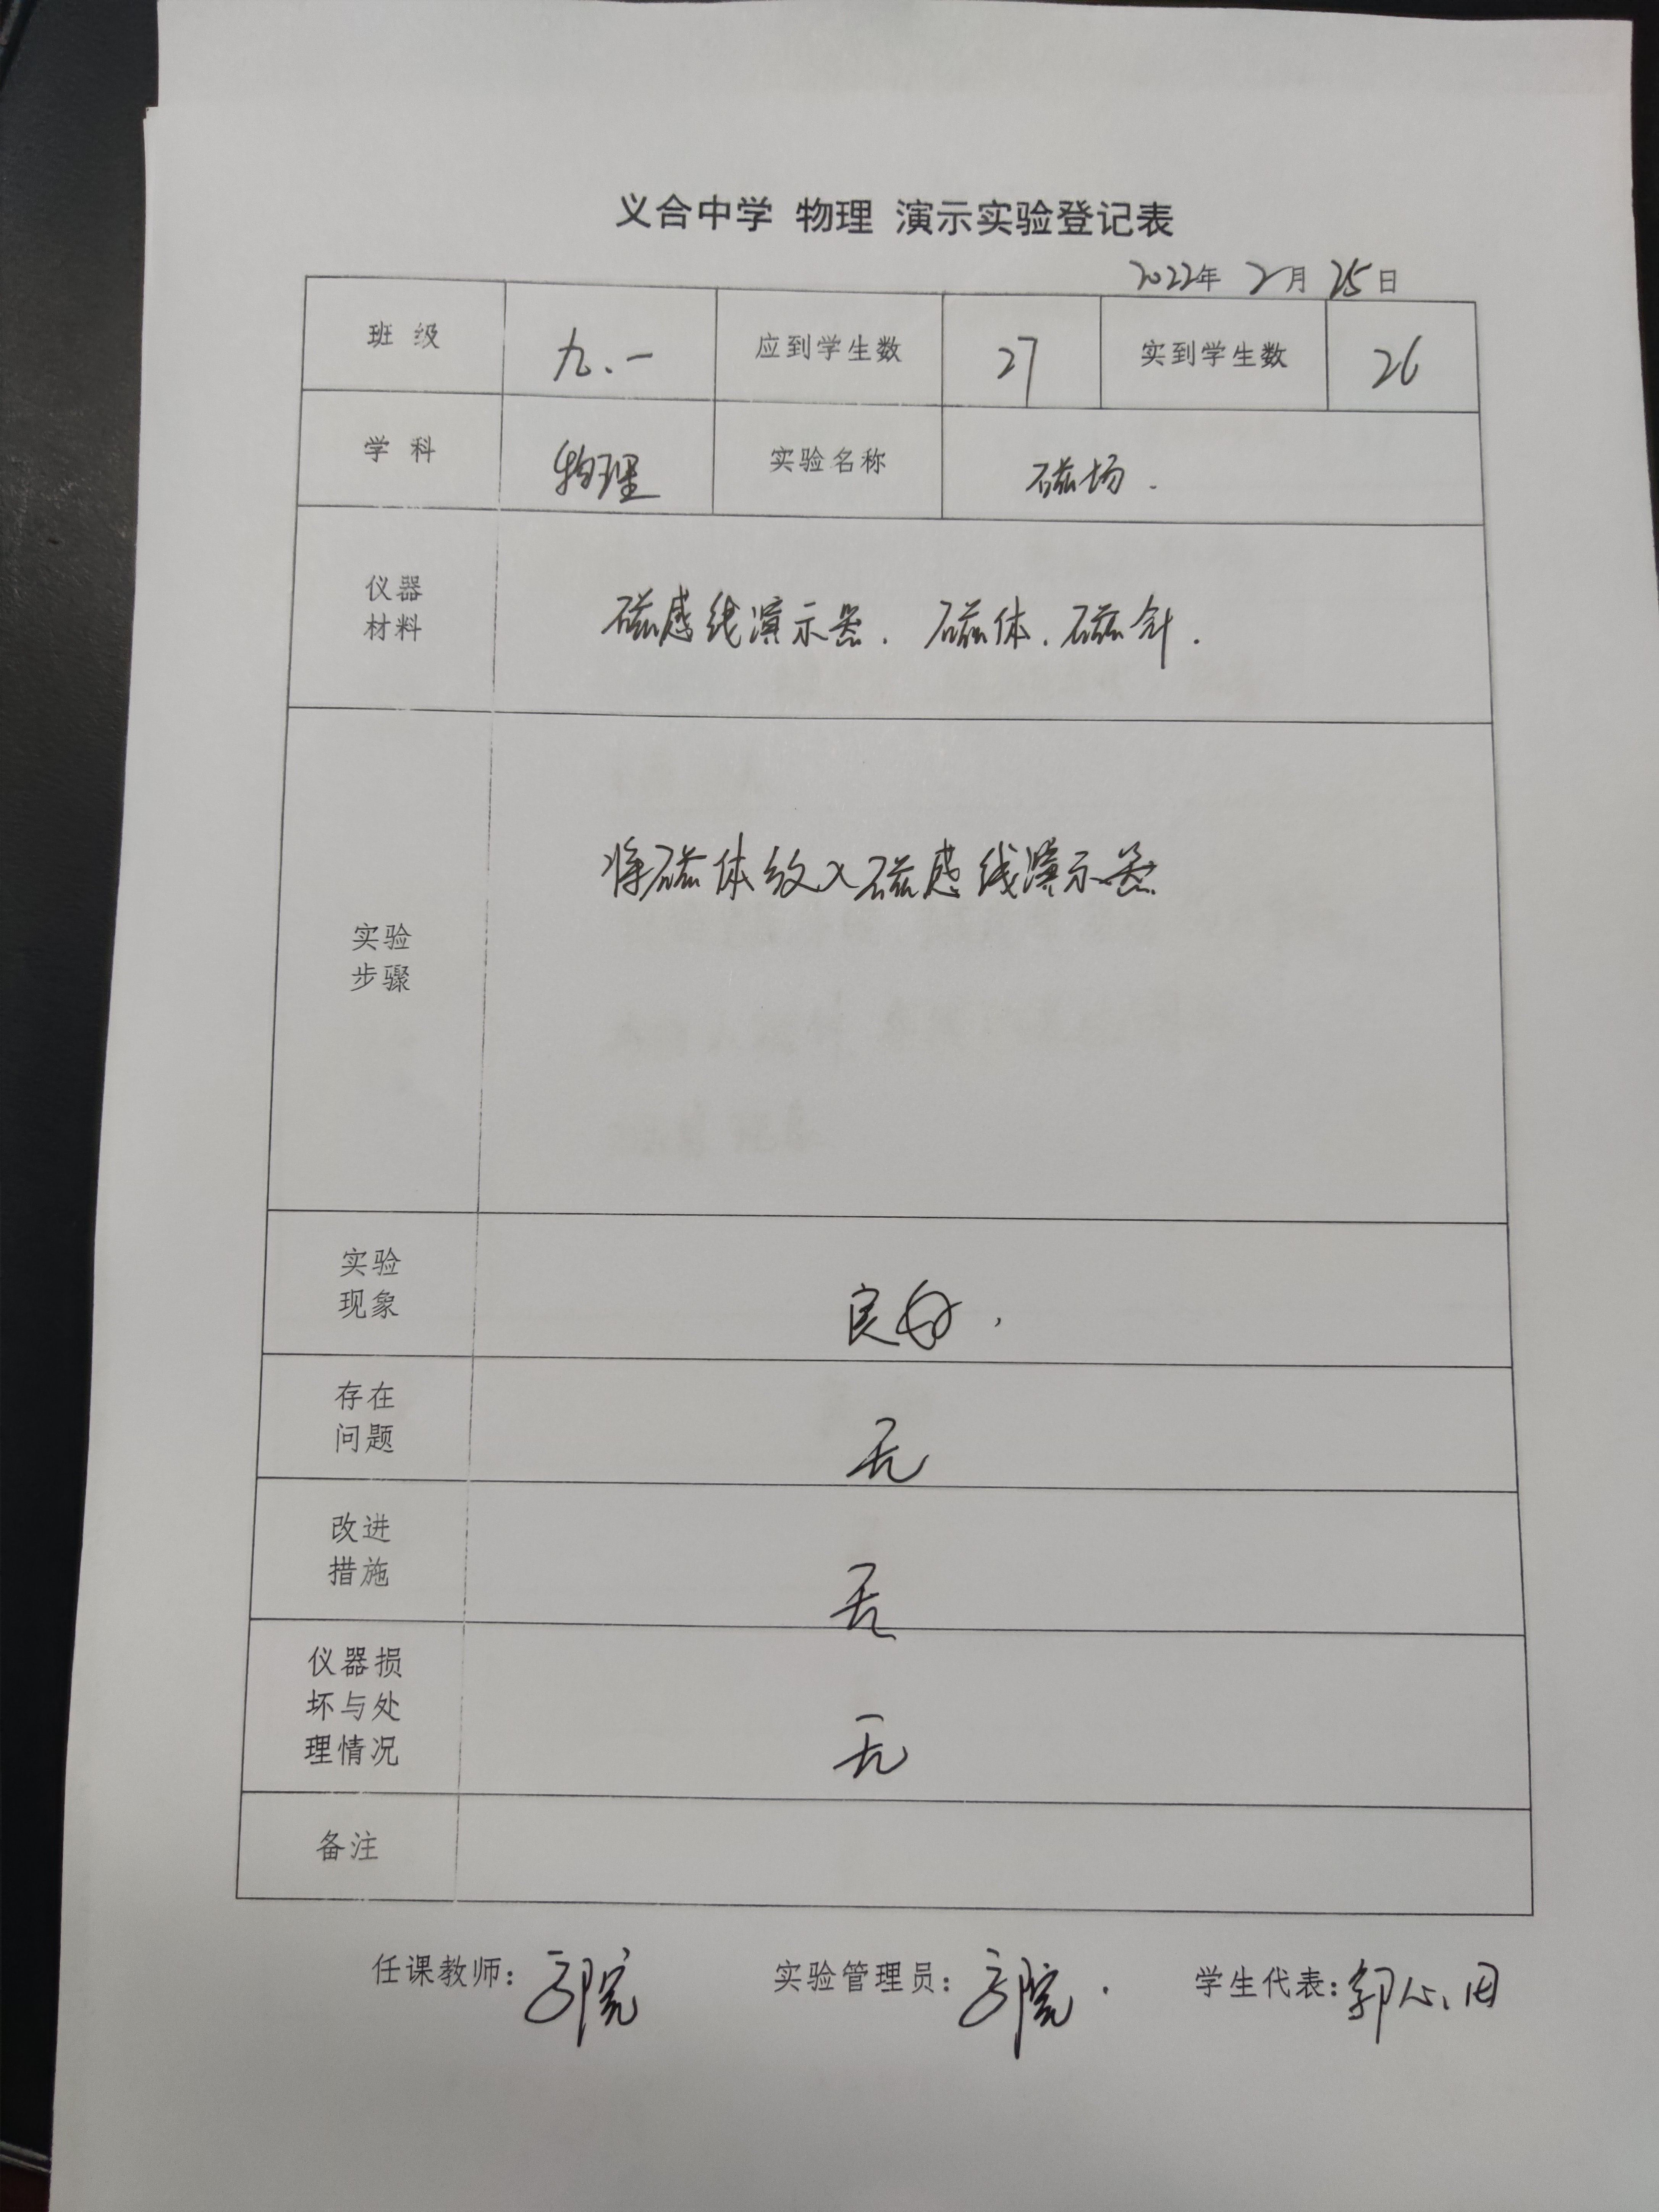 义合中学 物理 演示实验登记表
2022年 2月 25日
班 级 九、一 应到学生数 27 实到学生数 26
学 科 物理 实验名称 磁场.
仪器
材料
磁感线演示器. 磁体. 磁针.
实验
步骤
将磁体放入磁感线演示器
实验
现象
良好.
存在
问题
无
改进
措施
无
仪器损
坏与处
理情况
无
备注
任课教师: 实验管理员: 学生代表: